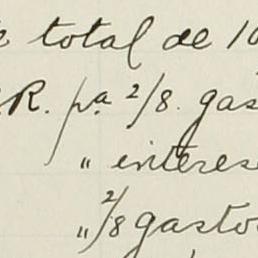 total de 10
R. pa 2/8. gas
" interese
" 2/8 gasto